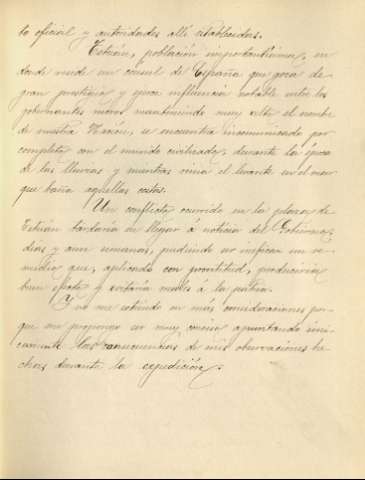 to oficial y autoridades alli establecidas.
Tetuán, población importantísima, en
donde reside un consul de España que goza de
gran prestigio y ejerce influencia notable entre los
gobernantes moros manteniendo muy alto el nombre
de nuestra Nación, se encuentra incomunicado por
completo con el mundo civilizado, durante la época
de las lluvias y mientras reina el levante en el mar
que baña aquellas costas.
Un conflicto ocurrido en la plaza de
Tetuán tardaria en llegar á noticia del Gobierno,
dias y aun semanas, pudiendo ser ineficaz un re-
medio que, aplicado con prontitud, produciria
buen efecto y evitaria males á la patria.
Y no me extiendo en más consideraciones por-
que me propongo ser muy conciso apuntando úni-
camente las consecuencias de mis observaciones he-
chas durante la expedición.